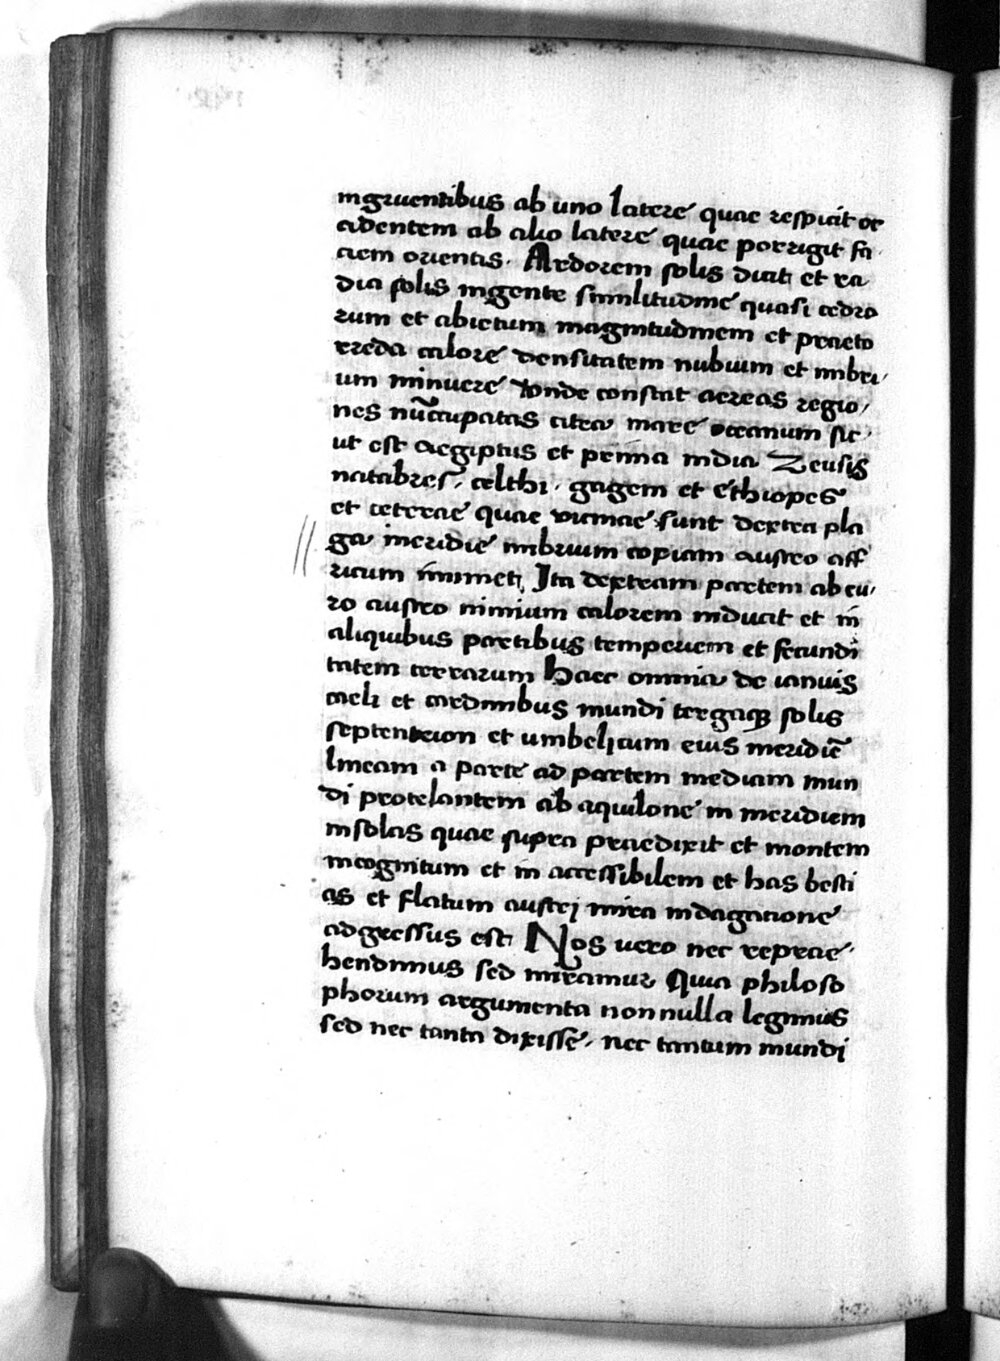 ingruentibus ab uno latere quae respicit oc
cidentem ab alio latere quae porrigit fa
ciem orientis. Ardorem solis dicit et ra
dia solis ingente similitudine quasi cedro
rum et abietum magnitudinem et praeto
rreda calore densitatem nubium et imbri
um minuere unde constat aereas regio
nes nuccupatas citra mare oceanum sic
ut est aegiptus et prima india Zeusis
natabres, celthi, gagem et ethiopes
et ceterae quae vicinae sunt dextra pla
ga meridie imbrium copiam austro aff
ricum immeti Ita dextram partem ab eu
ro austro nimium calorem inducit et in
aliquibus partibus temperiem et fecundi
tatem terrarum Haec omnia de ianuis
caeli et cardinibus mundi tergaque solis
septentrion et umbelicum eius meridie
lineam a parte ad partem mediam mun
di protelantem ab aquilone in meridiem
insolas quae supra praedixit et montem
incognitum et in accessibilem et has besti
as et flatum austri mira indagatione
adgressus est. Nos uero nec reprae
hendimus sed miramur Quia philoso
phorum argumenta non nulla legimus
sed nec tanta dixisse, nec tantum mundi